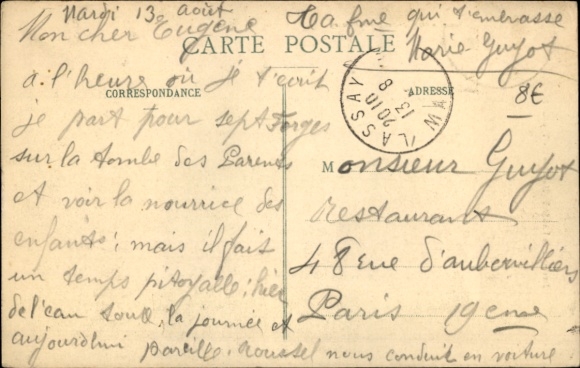 Mardi 13 août
Mon cher Eugène
à l'heure où je t'écris
je part pour sept Forges
sur la tombe des Parents
et voir la nourrice des
enfants; mais il fait
un temps pitoyable; hier
de l'eau toute la journée et
aujourd'hui pareille. Roussel nous conduit en voiture
Ta fme qui t'embrasse
Marie Guyot
CARTE POSTALE
CORRESPONDANCE
ADRESSE
LASSAY
2010
13 8
8€
Monsieur Guyot
restaurant
48 rue d'aubervilliers
Paris 19eme